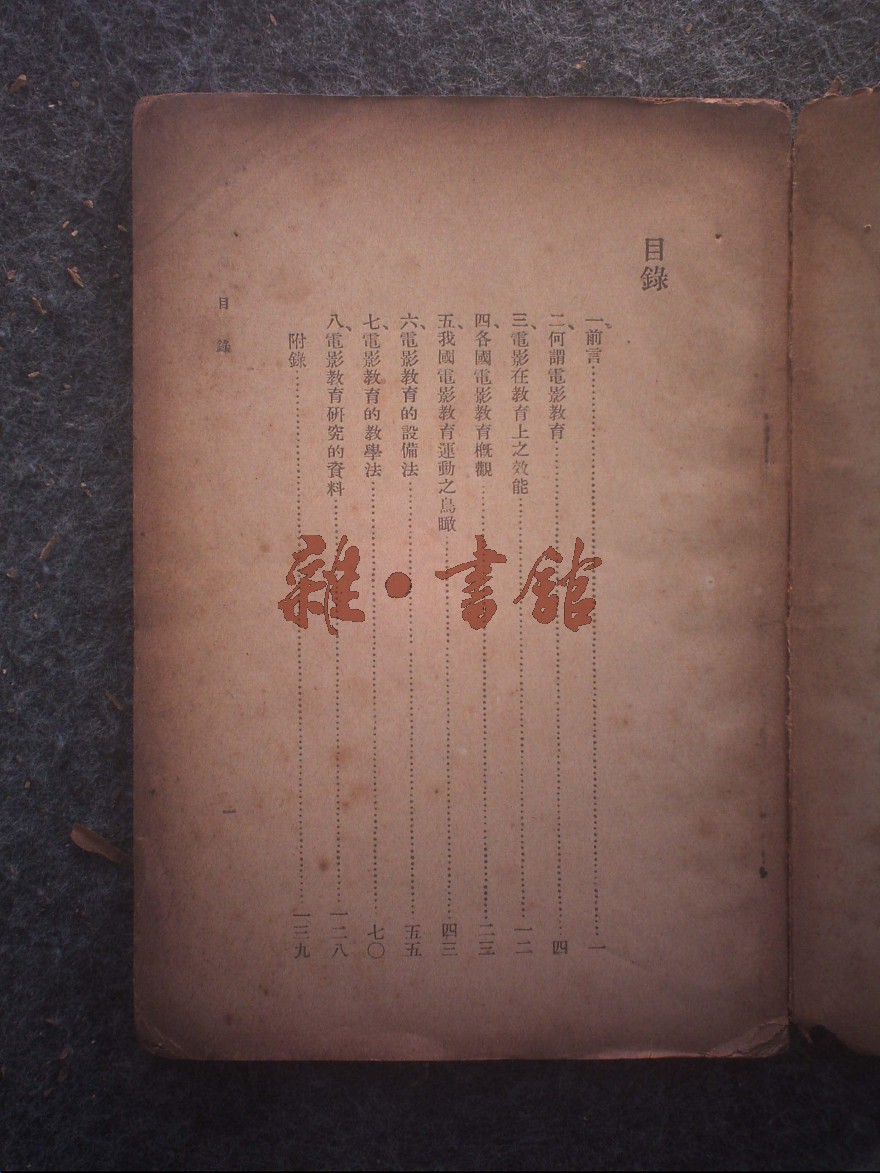 目錄
一、前言……一
二、何謂電影教育……四
三、電影在教育上之效能……一二
四、各國電影教育概觀……二三
五、我國電影教育運動之鳥瞰……四三
六、電影教育的設備法……五五
七、電影教育的教學法……七〇
八、電影教育研究的資料……一二八
附錄……一三九
目錄
一
雜·書館